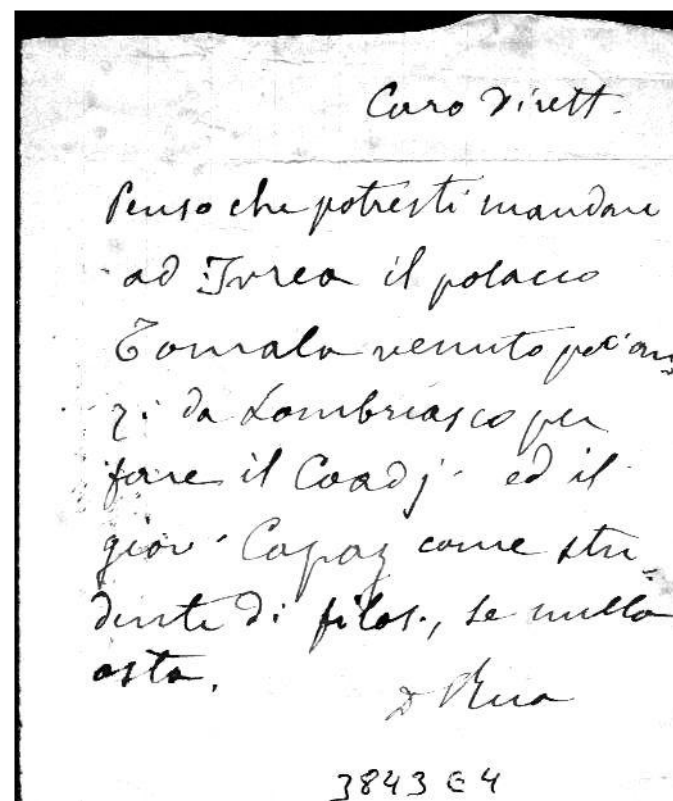 Caro Dirett.
Penso che potresti mandare
ad Ivrea il polacco
Tomala venuto poc'an=
zi da Lombriasco per
fare il Coadj. ed il
giov. Capaz come stu=
dente di filos., se nulla
osta.
D Rua
3843 E 4